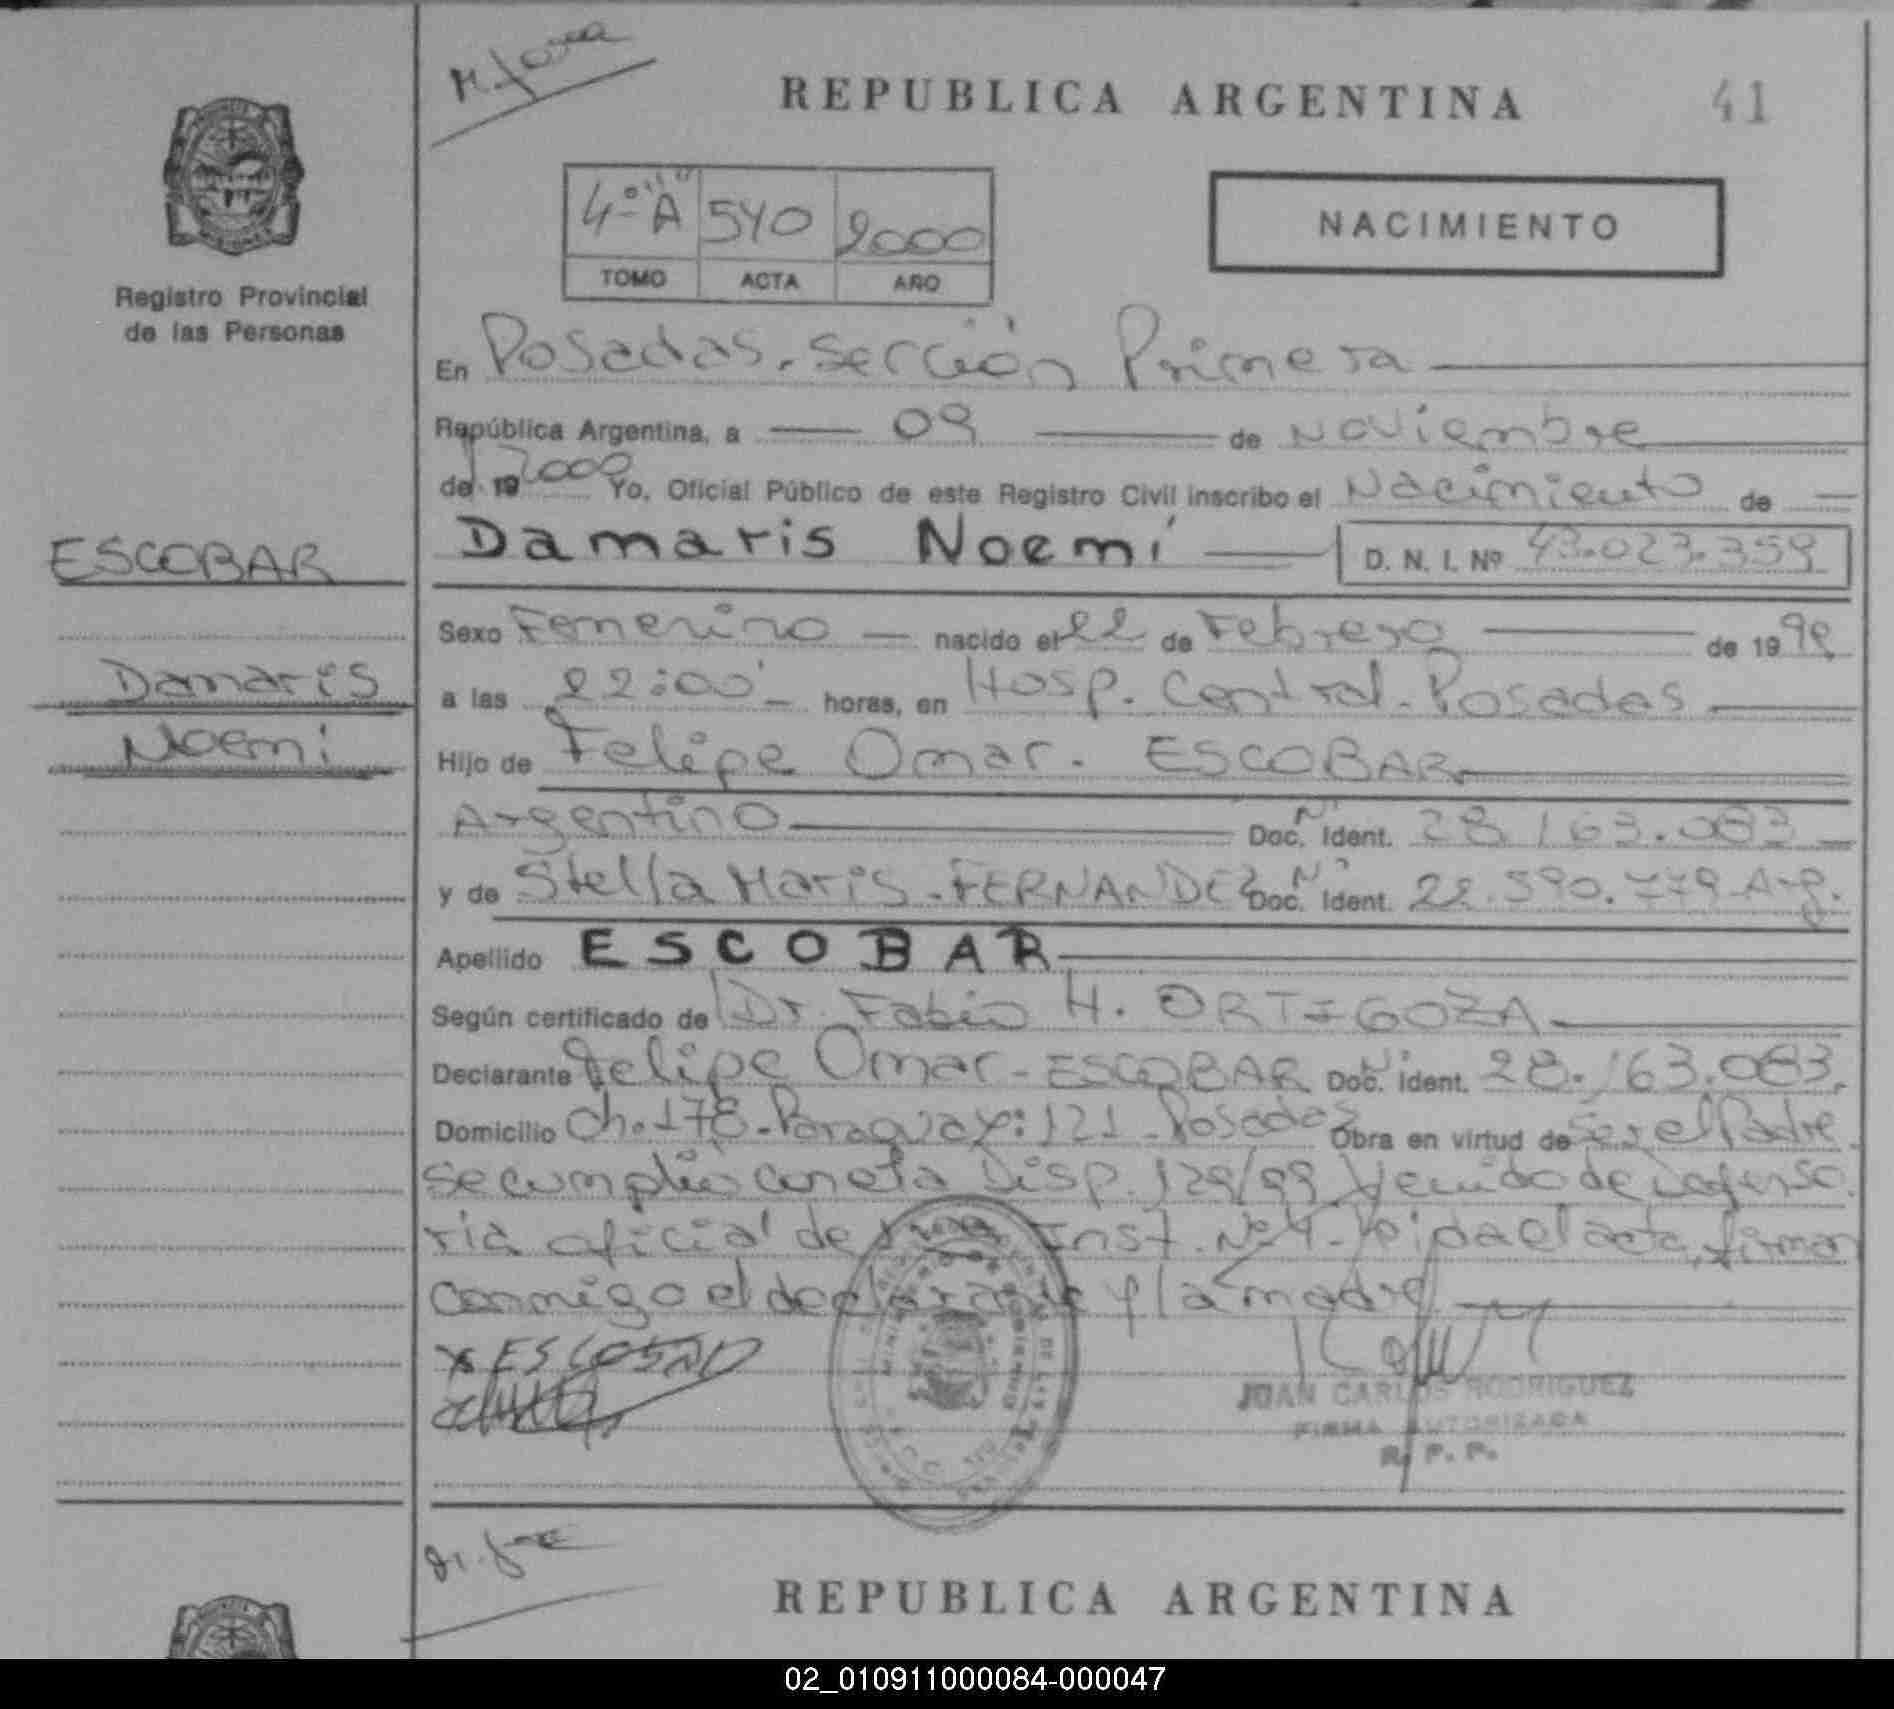 REPUBLICA ARGENTINA
41
4º "A" 540 2000
TOMO ACTA AÑO
NACIMIENTO
Registro Provincial
de las Personas
En Posadas. Sección Primera
República Argentina, a 09 de Noviembre
de 19 2000 Yo, Oficial Público de este Registro Civil inscribo el Nacimiento de
ESCOBAR
Damaris
Noemi
Damaris Noemí D. N. I. Nº 43.023.359
Sexo Femenino nacido el 22 de Febrero de 19
a las 22:00 horas, en Hosp. Central. Posadas
Hijo de Felipe Omar. ESCOBAR
Argentino Doc. Nº Ident. 28.163.083
y de Stella Maris. FERNANDEZ Doc. Nº Ident. 22.590.779 Arg.
Apellido ESCOBAR
Según certificado de Dr. Fabio H. ORTIGOZA
Declarante Felipe Omar - ESCOBAR Doc. Nº Ident. 28.163.083.
Domicilio Ch. 178 - Paraguay: 121 - Posadas Obra en virtud de ser el Padre.
se cumplió con eta Disp. 129/99 de Defenso
ria oficial de Inst. Nº 4. Leida el acta, firman
conmigo el declarante y la madre
x ESCOBAR
JUAN CARLOS RODRIGUEZ
FIRMA AUTORIZADA
R. P. P.
REPUBLICA ARGENTINA
02_010911000084-000047